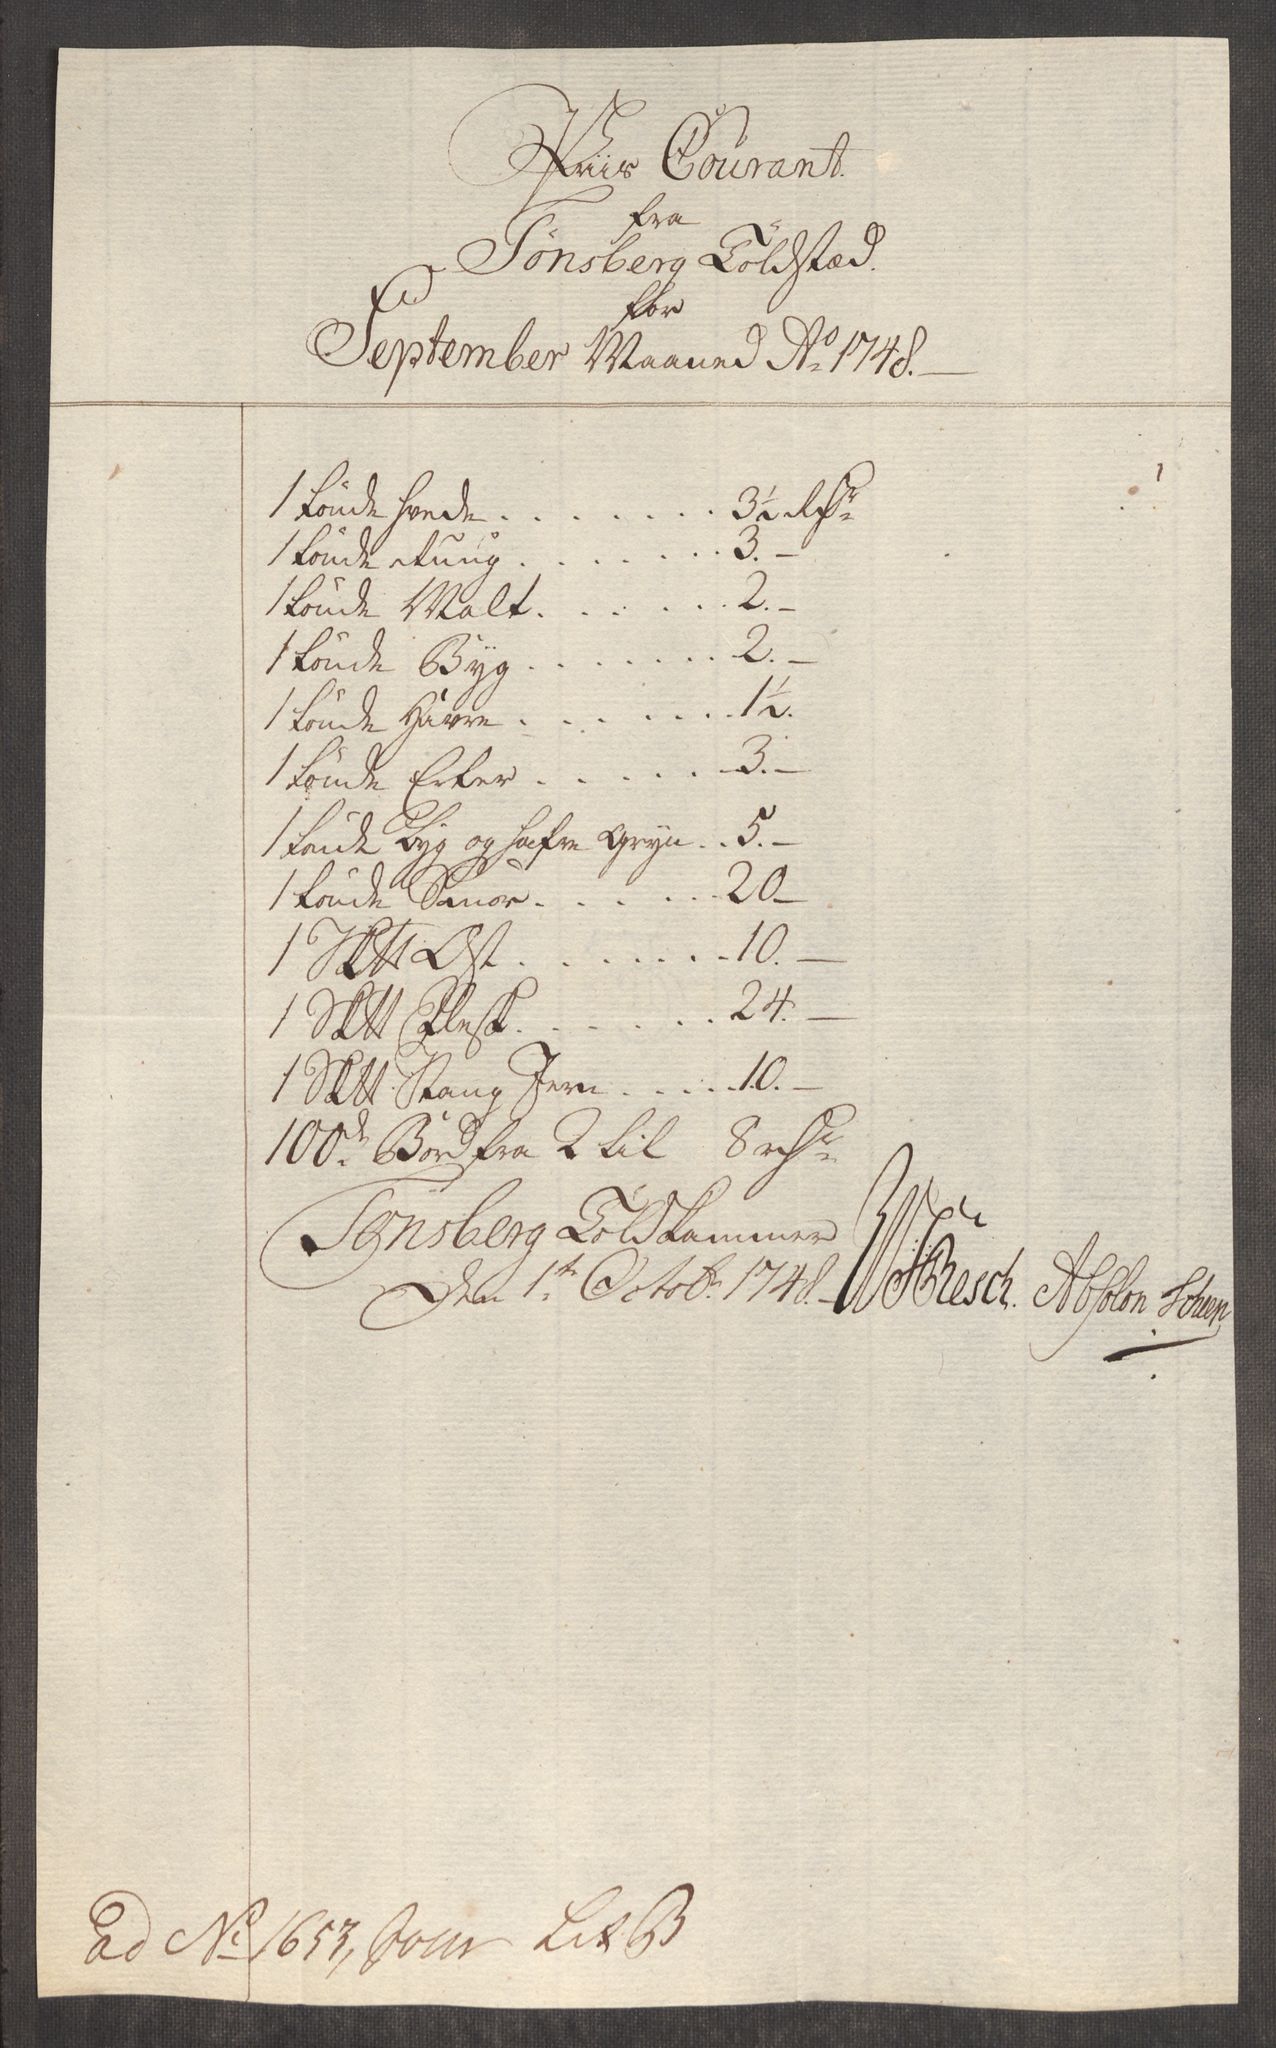 Priis Courant.
fra
Tønsberg Toldstæd.
for
September Maaned Ao 1748.
1 tønde Hvede . . . . . . . 3½ Rdr
1 tønde Rug . . . . . . . 3.-
1 tønde Malt . . . . . . 2.-
1 tønde Byg . . . . . . . 2.-
1 tønde Havre . . . . . . 1½.
1 tønde Erter . . . . . 3.-
1 tønde Byg og Hafre Gryn . . 5.-
1 tønde Smør . . . . . 20-
1 Sk℔ Ost . . . . . . . 10.-
1 Sk℔ Flesk . . . . . . 24.-
1 Sk℔ Stang Jern . . . . 10.-
100de Bord fra 2 til 8 rdr
Tønsberg Told Kammer
den 1te Octobr 1748.- Resch. Absolon Scheen
Ad No 1653, Jour Lit B